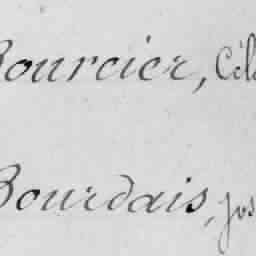 Bourcier, Cél
Bourdais, Jos